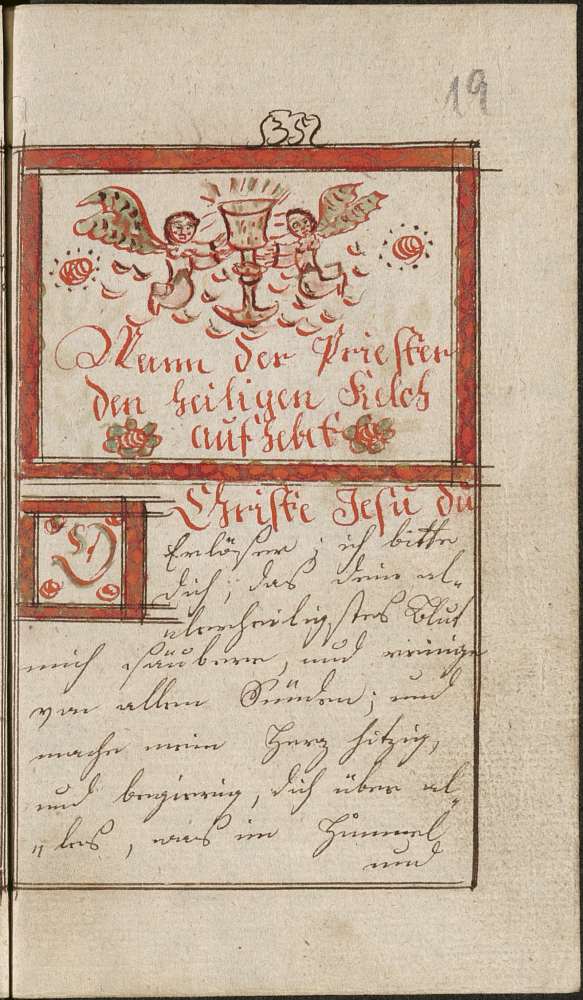 19
(35)
Wann der Priester
den heiligen Kelch
aufhebt
O
Christe Jesu du
Erlöser; ich bitte
dich; das dein al-
lerheiligstes Blut
mich säubere, und reinige
von allen Sünden; und
mache mein Herz hitzig,
und begierig, dich über al-
"les, was im Himmel
und